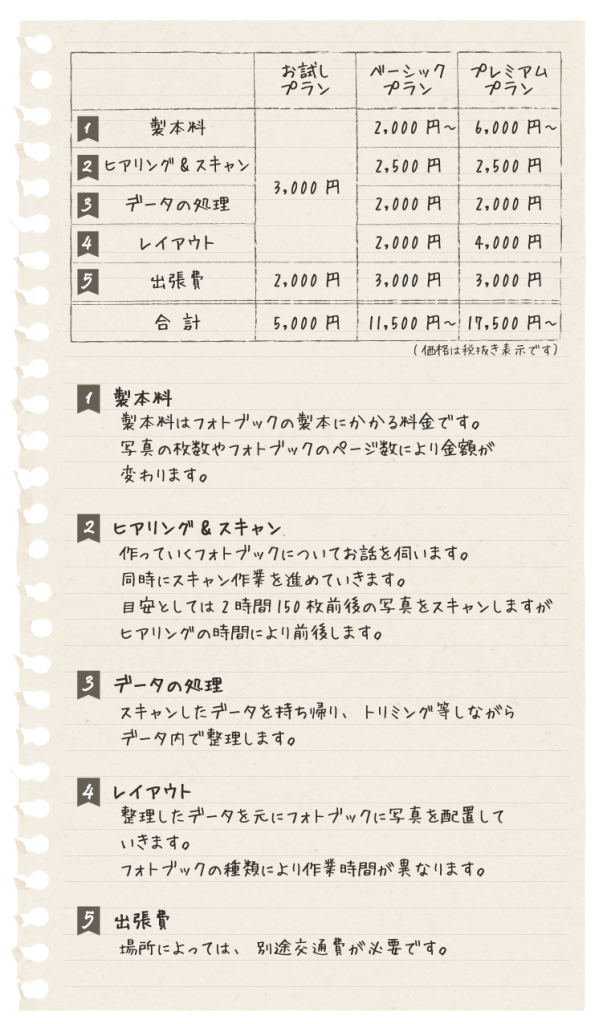 お試し プラン ベーシック プラン プレミアム プラン
1 製本料 3,000 円 2,000 円～ 6,000 円～
2 ヒアリング & スキャン 2,500 円 2,500 円
3 データの処理 2,000 円 2,000 円
4 レイアウト 2,000 円 4,000 円
5 出張費 2,000 円 3,000 円 3,000 円
合 計 5,000 円 11,500 円～ 17,500 円～
(価格は税抜き表示です)
1 製本料
製本料はフォトブックの製本にかかる料金です。
写真の枚数やフォトブックのページ数により金額が
変わります。
2 ヒアリング & スキャン
作っていくフォトブックについてお話を伺います。
同時にスキャン作業を進めていきます。
目安としては 2 時間 150 枚前後の写真をスキャンしますが
ヒアリングの時間により前後します。
3 データの処理
スキャンしたデータを持ち帰り、トリミング等しながら
データ内で整理します。
4 レイアウト
整理したデータを元にフォトブックに写真を配置して
いきます。
フォトブックの種類により作業時間が異なります。
5 出張費
場所によっては、別途交通費が必要です。